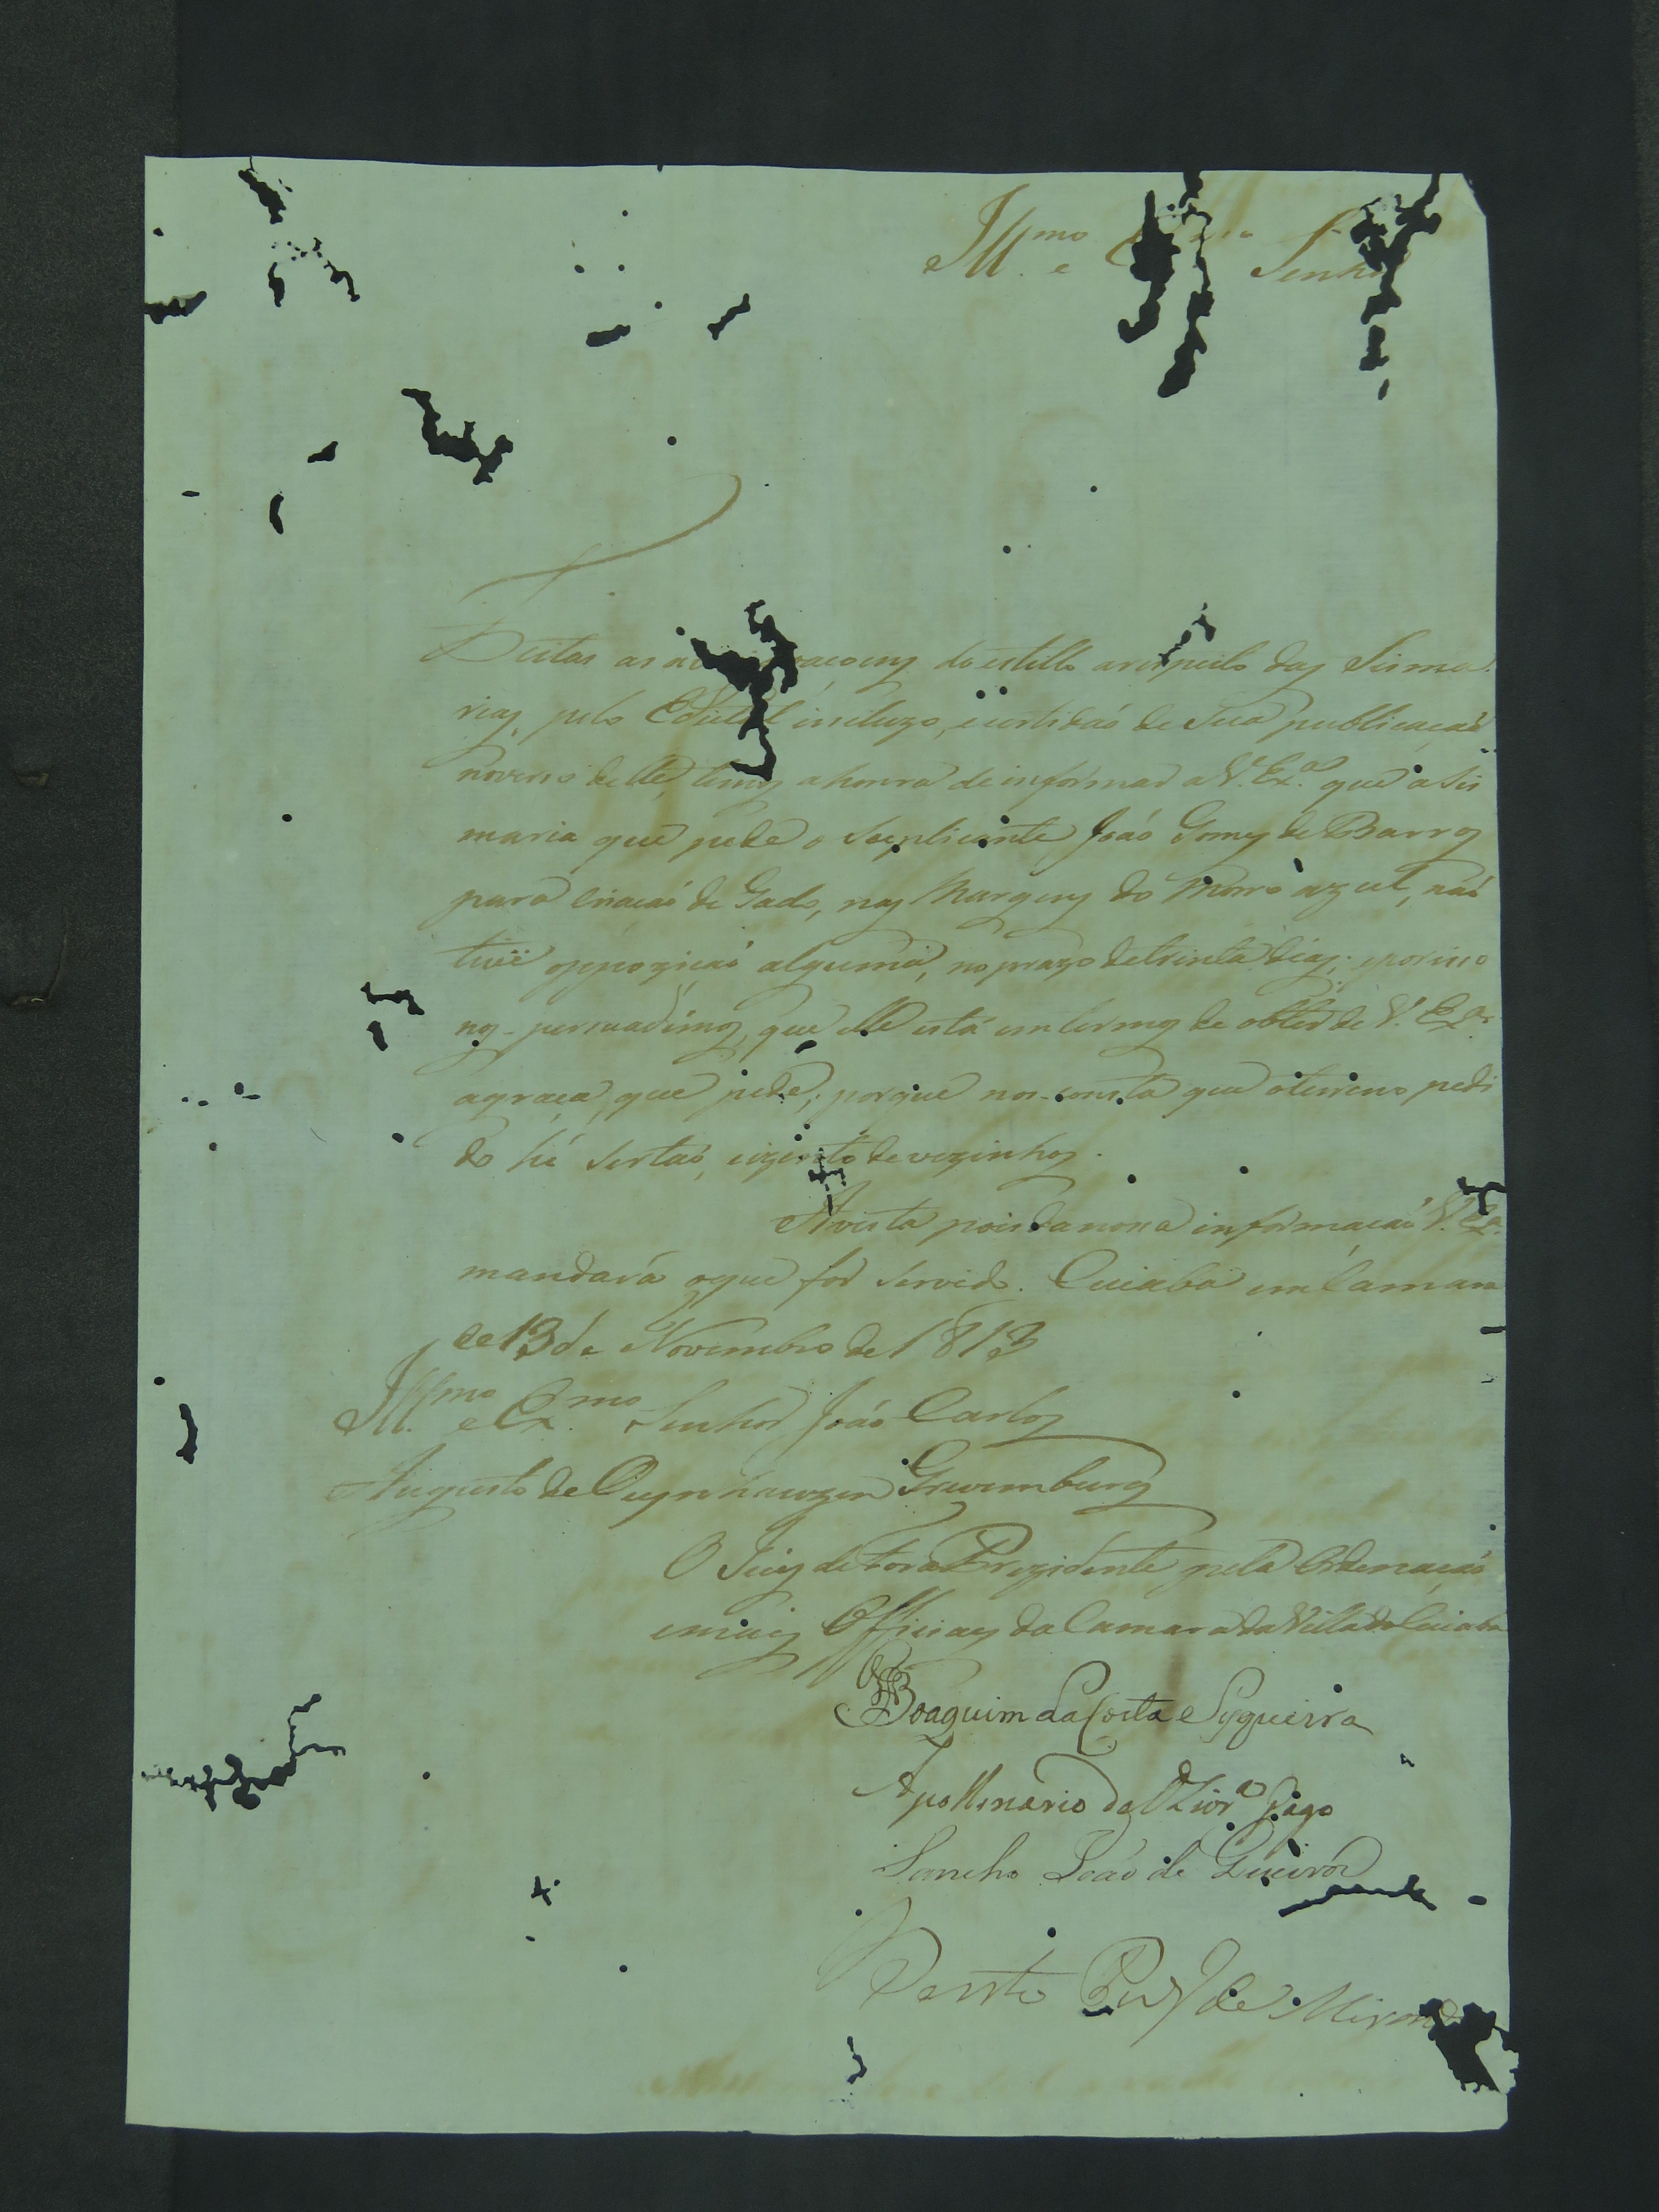 Ill.mo e Senho
Feitas as açoens do estillo arespeito das Sisma
rias, pelo Edital incluzo, ecertidaõ de Sua publicaçaõ
noverso delle, temos ahonra de informar a V. Ex.a que a Sis
maria que pede o Supplicante Joaõ Gomes de Barros
para criacaõ de Gado, nas Margens do Morro azul, naõ
teve oppoziçaõ alguma, noprazo detrinta dias; eporisso
nos persuadimos, que elle está emtermos de obter de V. Ex.a
agraça, que pede; porque nos consta que oterreno pedi
do hé Sertaõ, eizento devezinhos.
Avista poisdanossa informaçaõ V. Ex.a
mandará oque for Servido. Cuiabá em Camara
de 13 de Novembro de 1813
Ill.mo e Ex.mo Senhor Joaõ Carlos
Augusto de Oeynhauzen Grevemburg
O Juiz defora Prezidente pela Ordenaçaõ
emais Officiaes da Camara da Villa do Cuiabá
Joaquim da Costa e Syqueira
Apollinario de Olivr.a Gago
Sancho Joaõ de Queiros
Bento de Mirand